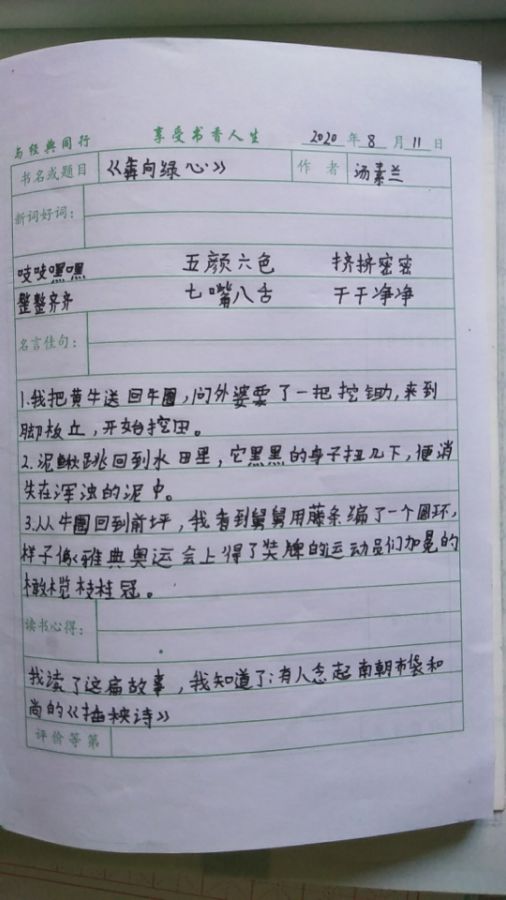 与经典同行 享受书香人生 2020年8月11日
书名或题目 《犇向绿心》 作者 汤素兰
新词好词：
吱吱嘿嘿 五颜六色 挤挤密密
整整齐齐 七嘴八舌 干干净净
名言佳句：
1.我把黄牛送回牛圈，问外婆要了一把挖锄，来到
脚板丘，开始挖田。
2.泥鳅跳回到水田里，它黑黑的身子扭几下，便消
失在浑浊的泥中。
3.从牛圈回到前坪，我看到舅舅用藤条编了一个圆环，
样子像雅典奥运会上得了奖牌的运动员们加冕的
橄榄枝桂冠。
读书心得：
我读了这篇故事，我知道了：有人念起南朝布袋和
尚的《插秧诗》
评价等第